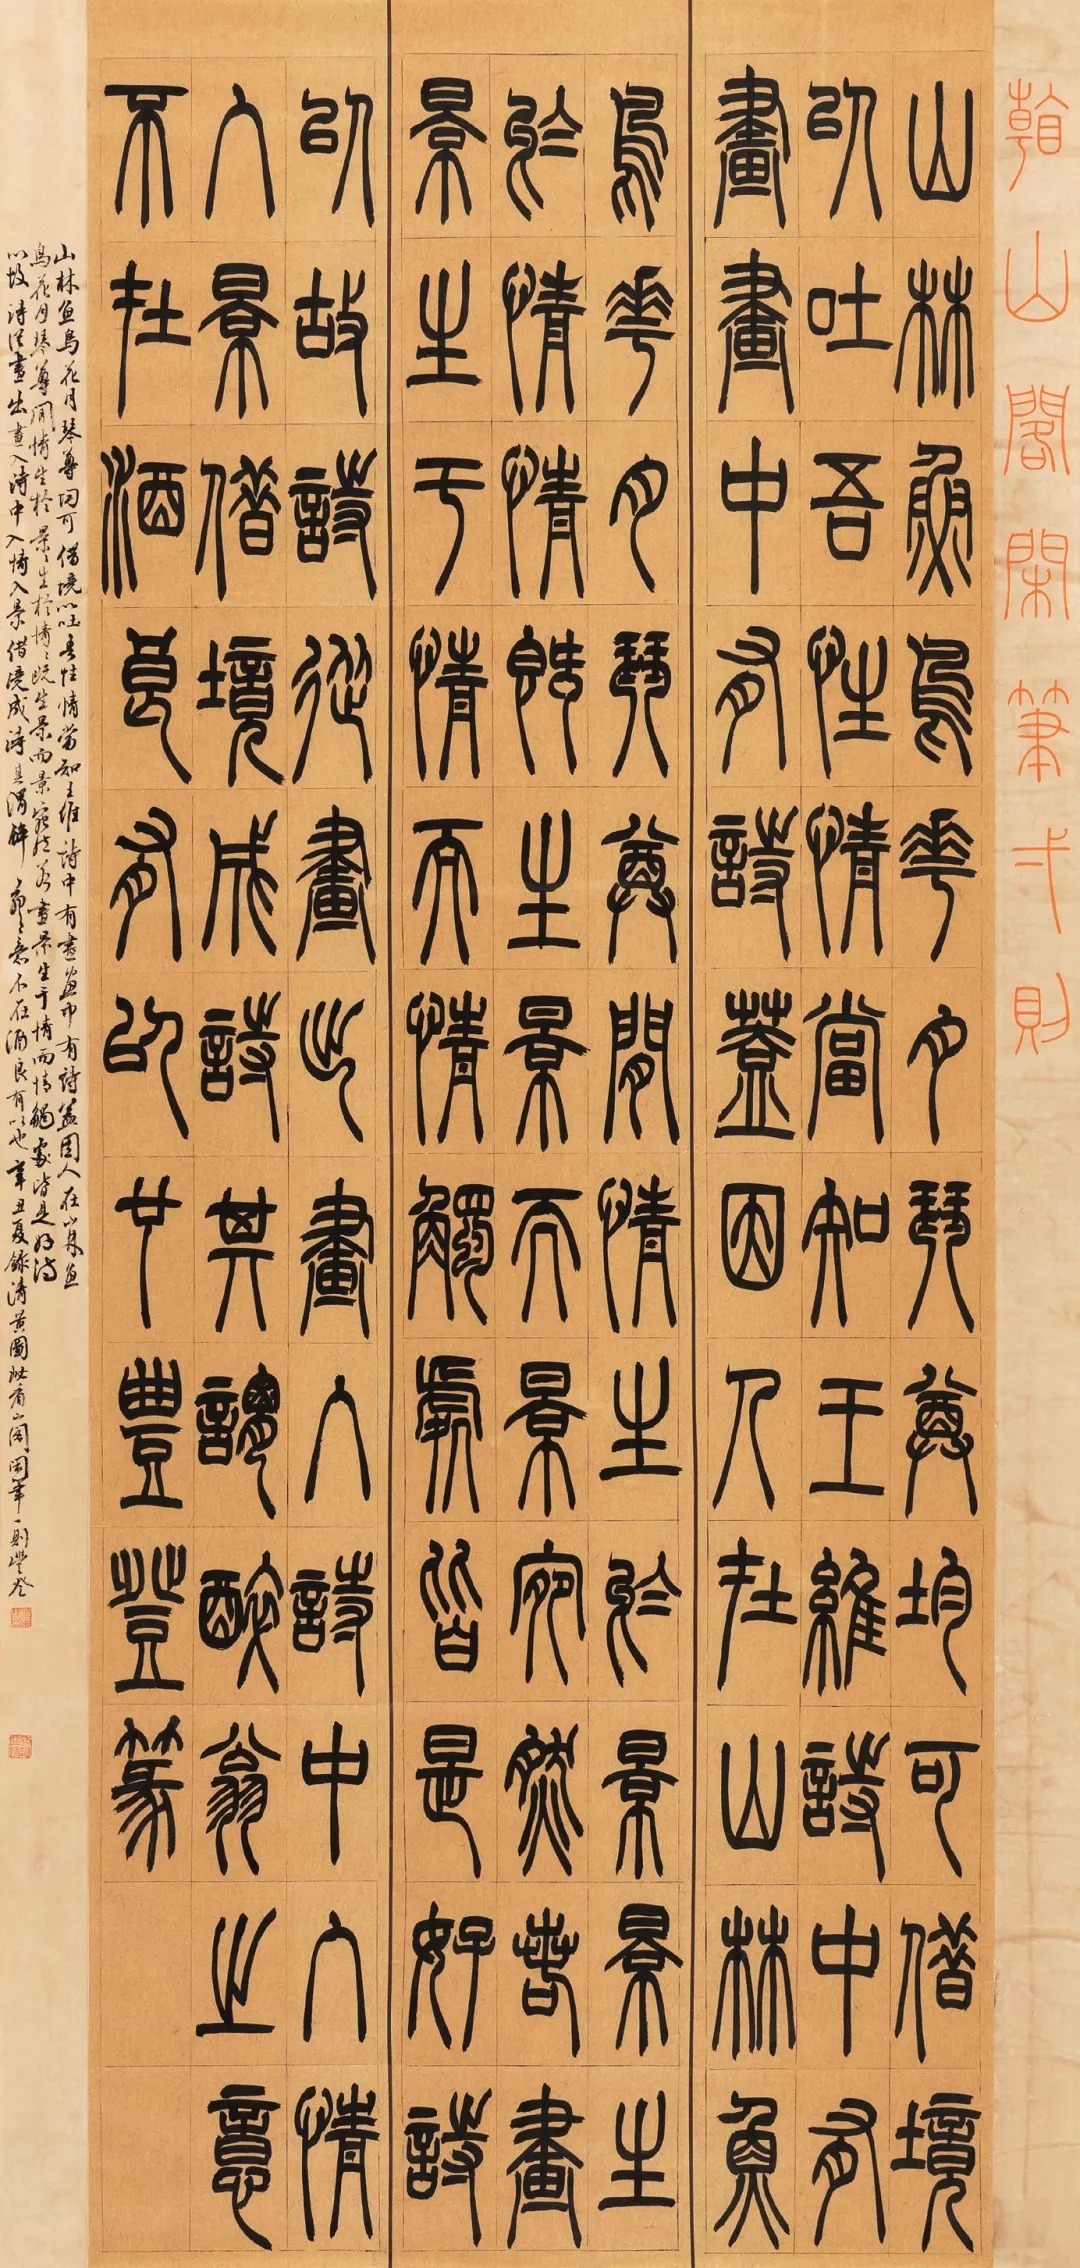 看山閣閑筆弌則
山林魚鳥華月琴尊均可借境
以吐吾性情當知王維詩中有
畫畫中有詩蓋因人在山林魚
鳥華月琴尊閒情生於景景生
於情情既生景而景宛然若畫
景生于情而情觸處皆是好詩
以故詩從畫出畫入詩中入情
入景借境成詩其謂醉翁之意
不在酒良有以也豐登篆
山林魚鳥花月琴尊均可借境以吐吾性情當知王維詩中有畫畫中有詩蓋因人在山林魚
鳥花月琴尊閒情生於景〻生於情〻既生景而景宛然若畫景生于情而情觸處皆是好詩
以故詩從畫出畫入詩中入情入景借境成詩其謂醉翁之意不在酒良有以也辛丑夏錄清黃圖珌看山閣閑筆一則豐登